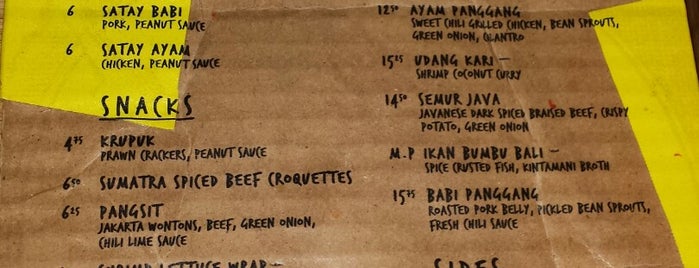 6 SATAY BABI
PORK, PEANUT SAUCE
6 SATAY AYAM
CHICKEN, PEANUT SAUCE
SNACKS
4.75 KRUPUK
PRAWN CRACKERS, PEANUT SAUCE
6.50 SUMATRA SPICED BEEF CROQUETTES
6.25 PANGSIT
JAKARTA WONTONS, BEEF, GREEN ONION,
CHILI LIME SAUCE
SHRIMP LETTUCE WRAP –
12.50 AYAM PANGGANG
SWEET CHILI GRILLED CHICKEN, BEAN SPROUTS,
GREEN ONION, CILANTRO
15.25 UDANG KARI –
SHRIMP COCONUT CURRY
14.50 SEMUR JAVA
JAVANESE DARK SPICED BRAISED BEEF, CRISPY
POTATO, GREEN ONION
M.P IKAN BUMBU BALI –
SPICE CRUSTED FISH, KINTAMANI BROTH
15.75 BABI PANGGANG
ROASTED PORK BELLY, PICKLED BEAN SPROUTS,
FRESH CHILI SAUCE
SIDES